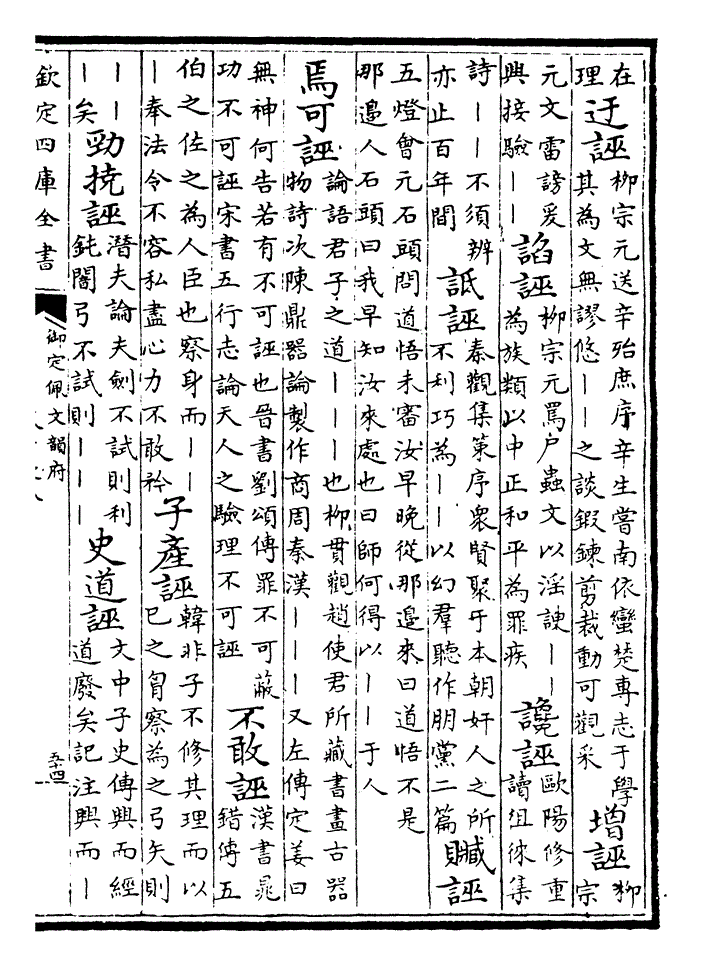 在
理
迂誣
柳宗元送辛殆庶序辛生嘗南依蠻楚専志于學
其為文無謬悠丨丨之談鍛鍊剪裁動可觀采
増誣
柳
宗
元文雷謗爰
興接驗丨丨
諂誣
柳宗元罵尸蟲文以淫諛丨丨
為族類以中正和平為罪疾
讒誣
歐陽修重
讀徂徠集
詩丨丨不須辨
亦止百年間
詆誣
秦觀集策序衆賢聚于本朝奸人之所
不利巧為丨丨以幻羣聽作朋黨二篇
贓誣
五燈會元石頭問道悟未審汝早晚從那邉來曰道悟不是
那邉人石頭曰我早知汝來處也曰師何得以丨丨于人
焉可誣
論語君子之道丨丨丨也栁貫觀趙使君所藏書畫古器
物詩次陳鼎器論製作商周秦漢丨丨丨又左傳定姜曰
無神何告若有不可誣也晉書劉頌傳罪不可蔽
功不可誣宋書五行志論天人之驗理不可誣
不敢誣
漢書鼂
錯傳五
伯之佐之為人臣也察身而丨丨
丨奉法令不容私盡心力不敢矜
子産誣
韓非子不修其理而以
已之胷察為之弓矢則
丨丨
丨矣
勁撓誣
潛夫論夫劍不試則利
鈍闇弓不試則丨丨丨
史道誣
文中子史傳興而經
道廢矣記注興而丨
欽定四庫全書
御定佩文韻府
五十四